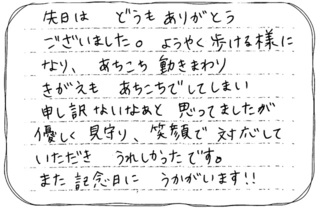 先日は どうもありがとう
ございました。ようやく歩ける様に
なり、あちこち動きまわり
きがえも あちこちでしてしまい
申し訳ないなあと 思ってましたが
優しく見守り、笑顔で対応して
いただき うれしかったです。
また記念日に うかがいます!!